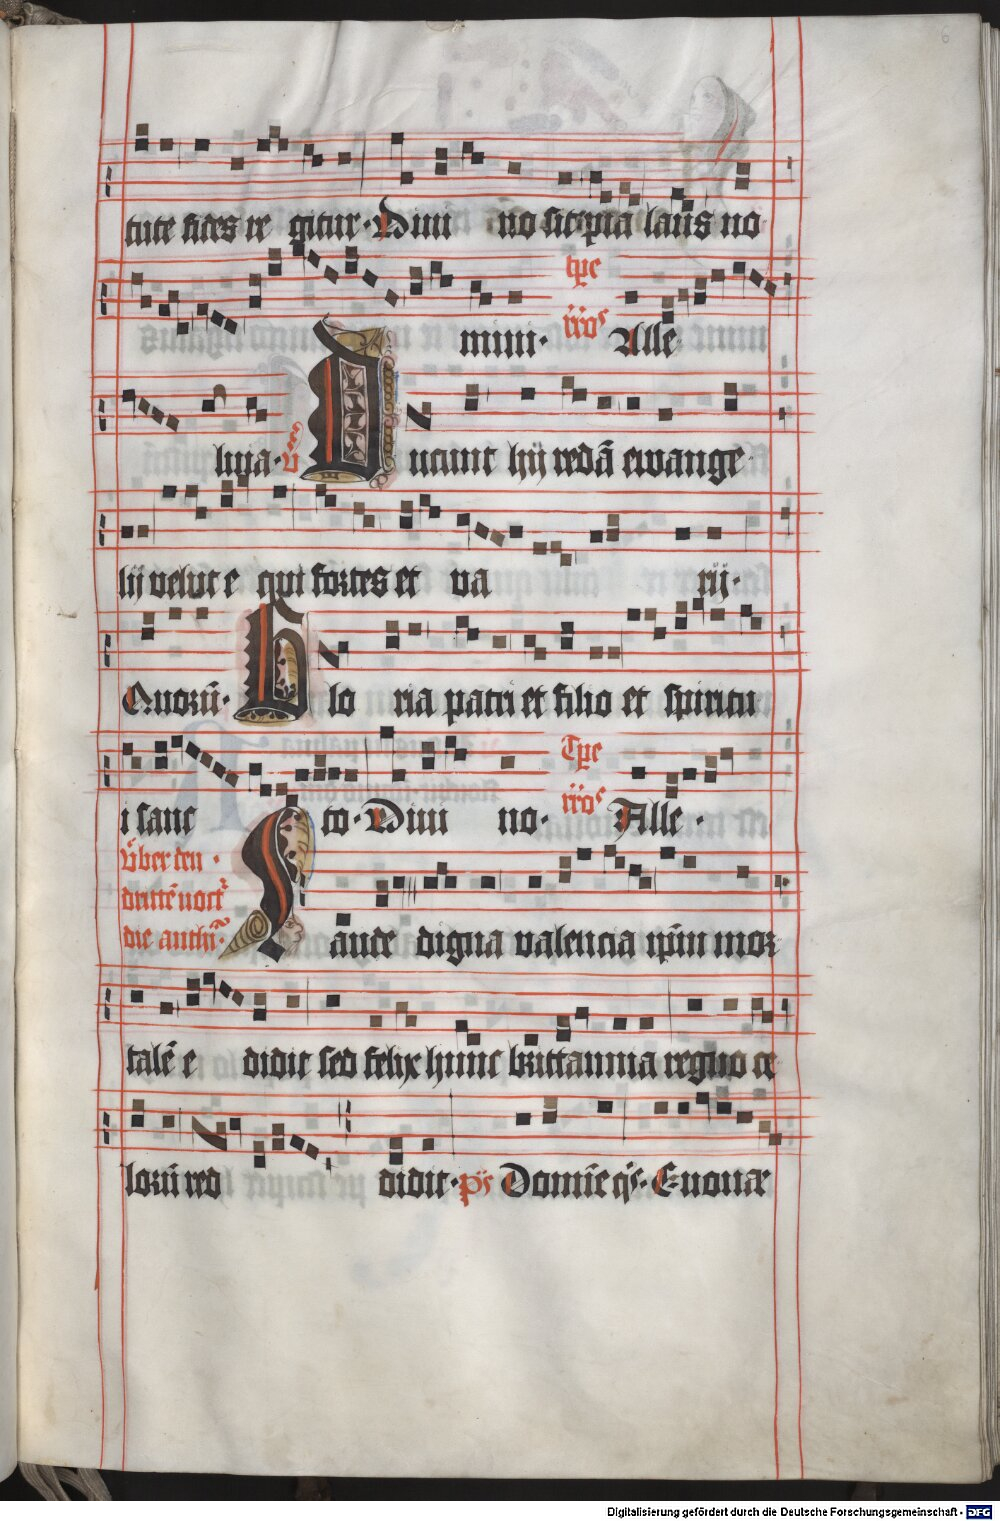 6
tute fides re gitur · Divi no sit ip̄ia laus no
tp̄e
mini · rr̄os Alle
luia · v̄s Ducunt hij redā ewange
lij velut e qui fortes et va rij ·
Quorū · Glo ria patri et filio et spiritu
Tp̄e
i sanc to · Divi no · rr̄os Alle ·
v̄ber den ·
drittē noct̄
die anthī · Gaude digna valencia ip̄m mor
talē e didit sed felix hunc brittannia regno ce
lorū red didit · p̄s Domīe q̄s · Euouae
Digitalisierung gefördert durch die Deutsche Forschungsgemeinschaft - DFG